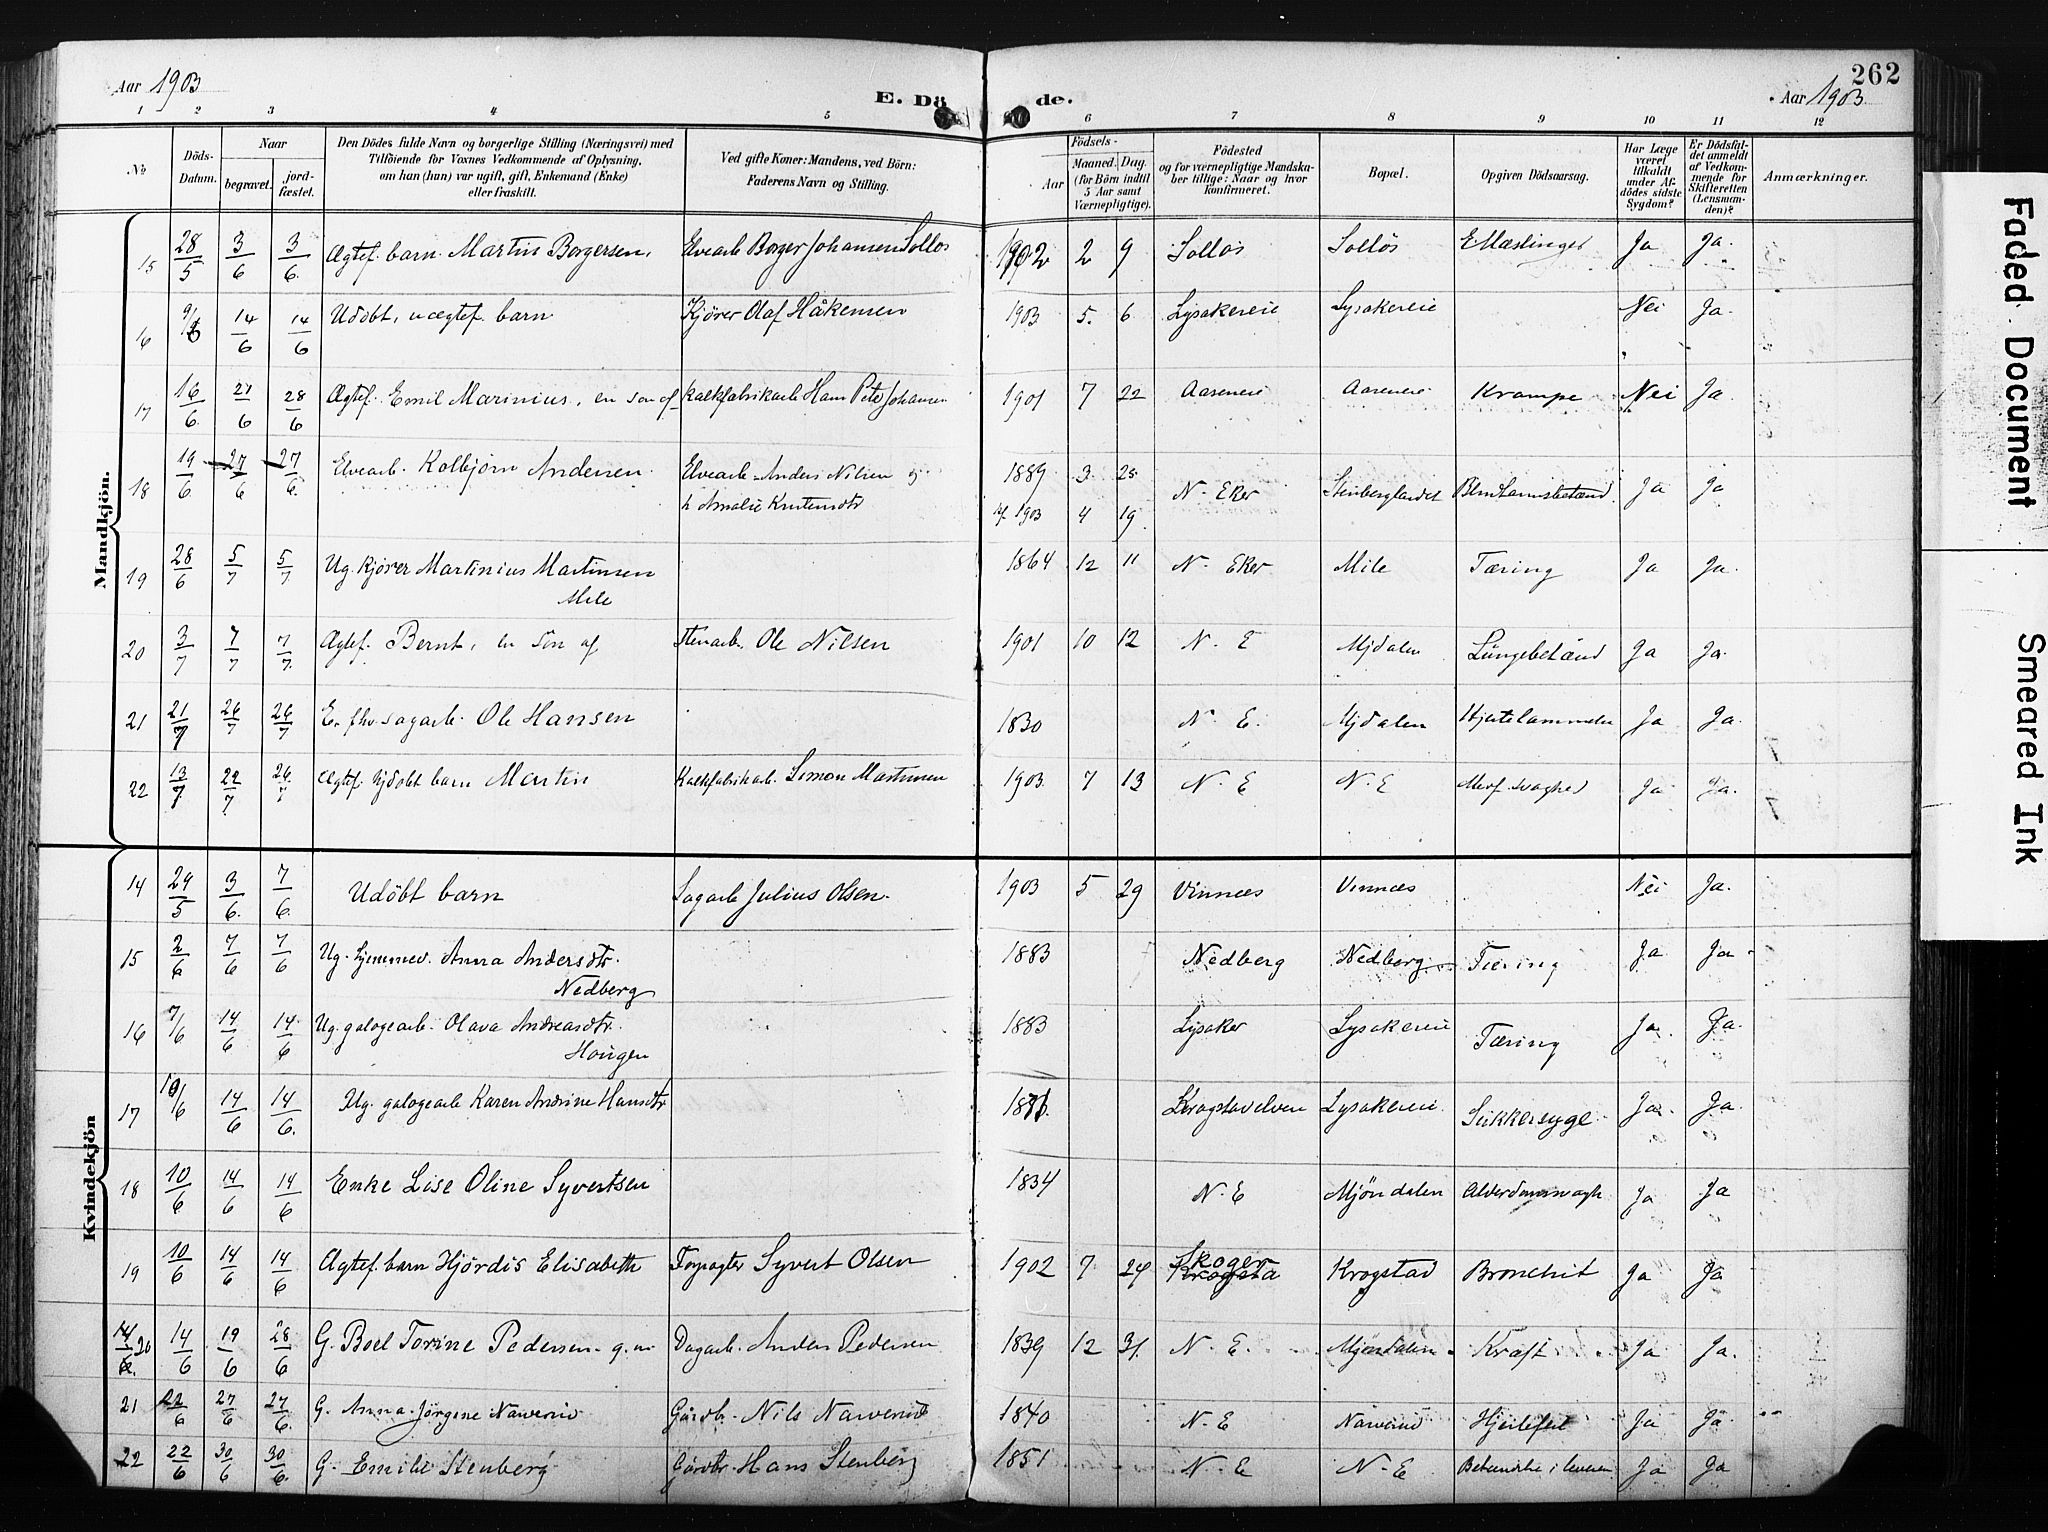 Aar 1903
E. Dö de.
Aar 1903
262
1 2 3 4 5 6 7 8 9 10 11 12
No
Döds-Datum.
Naar
begravet.
jord-fæstet.
Den Dödes fulde Navn og borgerlige Stilling (Næringsvei) med
Tilföiende for Voxnes Vedkommende af Oplysning,
om han (hun) var ugift, gift, Enkemand (Enke)
eller fraskilt.
Ved gifte Koner: Mandens, ved Börn:
Faderens Navn og Stilling.
Födsels-
Aar
Maaned. Dag.
(for Börn indtil
5 Aar samt
Værnepligtige).
Födested
og for værnepligtige Mandska-
ber tillige: Naar og hvor
konfirmeret.
Bopæl.
Opgiven Dödsaarsag.
Har Læge
været
tilkaldt
under Af-
dödes sidste
Sygdom?
Er Dödsfal-
det anmeldt
af Vedkom-
mende for
Skifteretten
(Lensman-
den)?
Anmærkninger.
Mandkjön.
15 28/5 3/6 3/6 Ægtef. barn Martin Borgersen, Elvearb Borger Johansen Solløs 1902 2 9 Solløs Solløs Mæslinger Ja Ja.
16 14/6 14/6 Udøbt, uægtef. barn Kjører Olaf Håkensen 1903 5. 6 Lysakereie Lysakereie Nei Ja.
17 16/6 21/6 28/6 Ægtef. Emil Marinius, en søn af Kalkfabrikarb Hans Peter Johansen 1901 7 22 Aaseneie Aaseneie Krampe Nei Ja
18 19/6 27/6 27/6 Elvearb. Kolbjørn Andersen. Elvearb. Anders Nilsen og
h Amalie Knutsendtr 1889 3 28 N. Eker Ja Ja
1903 4 19
19 28/6 5/7 5/7 Ug. Kjører Martinius Martinsen
Mile 1864 12 11 N. Eker Mile Tæring Ja Ja.
20 3/7 7/7 7/7 Ægtef. Bernt, en Søn af Stenarb. Ole Nilsen 1901 10 12 N. E Mjdalen Lungebetænd Ja Ja.
21 21/7 26/7 26/7 E. fhv. sagarb. Ole Hansen 1830 N. E. Mjdalen Hjertelammelse Ja Ja.
22 13/7 22/7 26/7 Ægtef. hjdøbt barn Martin Kalkfabrikarb. Simon Martinsen 1903 7 13 N. E N. E Medf. svaghed Ja Ja.
Kvindekjön
14 29/5 3/6. 7/6. Udöbt barn Sagarb Julius Olsen. 1903 5 29 Vinnæs Vinnæs Nei Ja.
15 2/6 7/6 7/6 Ug. hjemmev. Anna Andersdtr.
Nedberg 1883 Nedberg Nedberg Tæring Ja Ja.
16 7/6 14/6 14/6 Ug. galogearb. Olava Andreasdtr.
Hougen 1883 Lysaker Lysakereie Tæring Ja. Ja.
17 10/6 14/6 14/6. Ug. galogearb Karen Andrine Hansdtr Krogstadelven Lysakereie. Sukkersyge. Ja. Ja.
18 10/6 14/6 14/6 Enke Lise Oline Syvertsen 1834 N. E Mjöndalen Alderdomssvagh Ja Ja
19 10/6 14/6 14/6 Ægtef. barn Hjördis Elisabeth Forpagter Syvert Olsen 1902 7 24 Skoger
Krogsta Krogstad Bronchit Ja Ja
20 14/6 19/6 28/6 G. Boel Torine Pedersen. g.m. Dagarb. Anders Pedersen 1839 12 31. N. E. Mjöndalen Kræft. Ja Ja.
21 22/6 27/6 27/6. G. Anna Jørgine Narverud Gårdbr. Nils Narverud 1840 N. E Narverud Hjertefeil Ja Ja
22 22/6 30/6 30/6 G. Emilie Stenberg Gårdbr. Hans Stenberg 1851 N. E N. E Betændelse i leveren Ja Ja
Faded Document
Smeared Ink